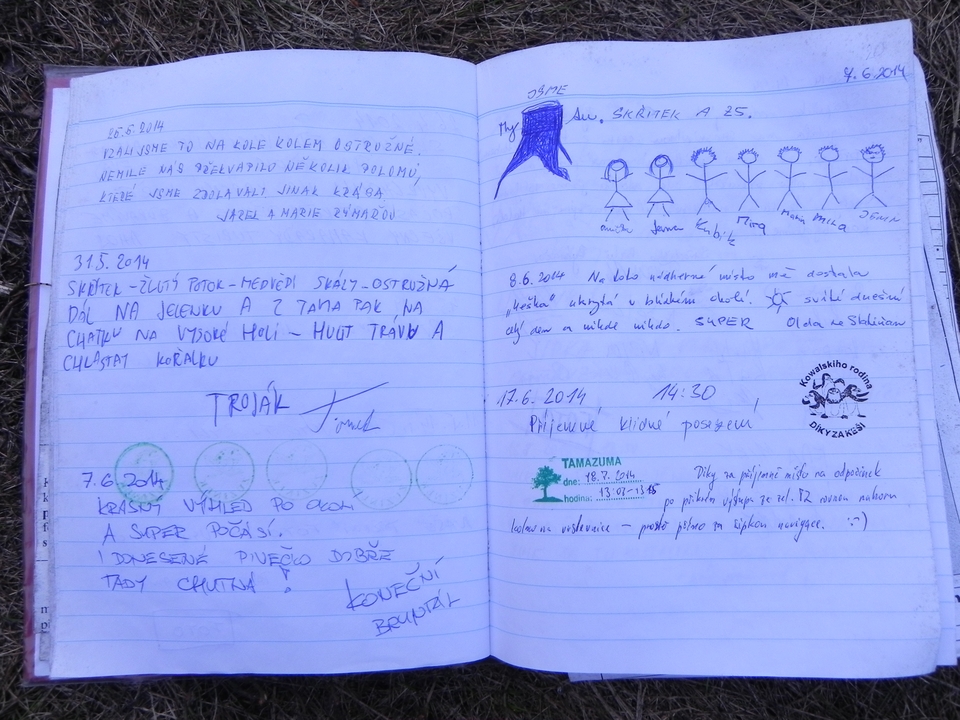 26.5.2014
VZALI JSME TO NA KOLE KOLEM OSTRUŽNÉ.
NEMILE NÁS PŘEKVAPILO NĚKOLIK POLOMŮ,
KTERÉ JSME ZDOLAVALI JINAK KRÁSA
A MARIE
31.5.2014
SKŘÍTEK - ŽLUTÝ POTOK - MEDVĚDÍ SKÁLY - OSTRUŽNÁ
DÁL NA JELENKU A Z TAMA PAK NA
CHATKU NA VYSOKÉ HOLI - HULIT TRAVU A
CHLASTAT KOŘALKU
TROJÁK
7.6.2014
KRÁSNÝ VÝHLED PO OKOLÍ
A SUPER POČASÍ.
I DONESENÉ PIVEČKO DOBŘE
TADY CHUTNÁ!
KONEČNÍ
BRUNTÁL
7.6.2014
JSME
My SKŘÍTEK A ZŠ.
Kubík Míra
8.6.2014 Na toto nádherné místo mě dostala
"keška" ukrytá v blízkém okolí. svítí dnešní
celý den a nikde nikdo. SUPER Olda ze
Kowalskiho rodina
DÍKY ZA KEŠI
17.6.2014 14:30
Příjemné klidné posezení
TAMAZUMA
dne: 18.7.2014
hodina: 13:03-13:15
Díky za příjemné místo na odpočinek
po výstupu ze zel. TZ rovnou nahoru
na - prostě přímo za šipkou navigace. :-)